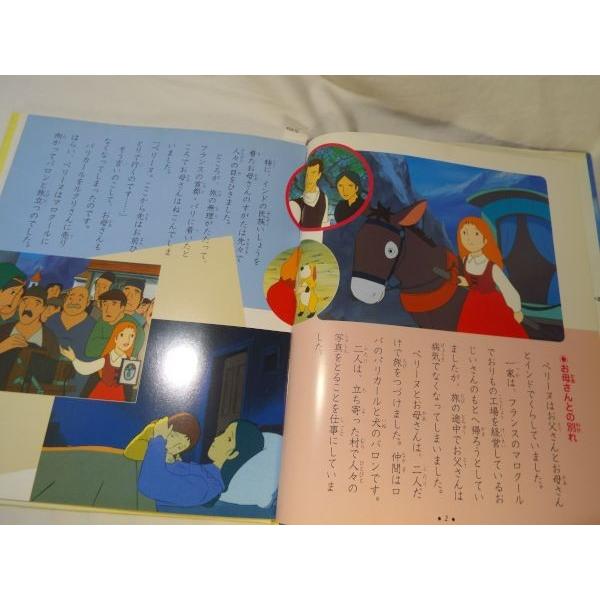 ●お母さんとの別れ
ペリーヌはお父さんとお母さん
とインドでくらしていました。
一家は、フランスのマロクール
でおりもの工場を経営しているお
じいさんのもとへ帰ろうとしてい
ましたが、旅の途中でお父さんは
病気でなくなってしまいました。
ペリーヌとお母さんは、二人だ
けで旅をつづけました。仲間はロ
バのパリカールと犬のバロンです。
二人は、立ち寄った村で人々の
写真をとることを仕事にしていま
した。
●2●
特に、インドの民族いしょうを
着たお母さんのすがたは先々で
人々の目をひきました。
ところが、旅の無理がたたって、
フランスの首都、パリに着いたと
ころでお母さんはねこんでしま
いました。
「ペリーヌ、ここから先はお前ひ
とりで行くのです……」
そううまいのこして、お母さんも
なくなってしまったのです。
パリカールをルクリさんに売り
はらい、ペリーヌはマロクールに
向かってバロンと旅立つのでした。